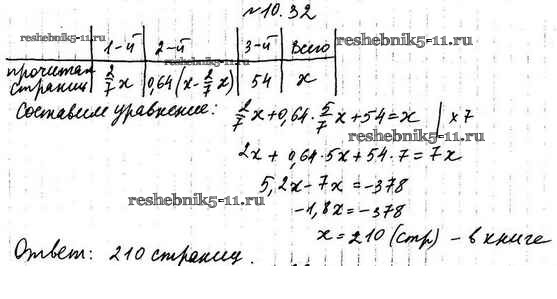 №10.32
reshebnik5-11.ru
1-й 2-й 3-й Всего
reshebnik5-11.ru
прочитан страниц 2/7 x 0,64(x-2/7 x) 54 x
Составим уравнение: 2/7 x+0,64·5/7 x+54=x | x7
reshebnik5-11.ru
2x+0,64·5x+54·7=7x
5,2x-7x=-378
reshebnik5-11.ru
-1,8x=-378
x=210 (стр) - в книге
Ответ: 210 страниц.